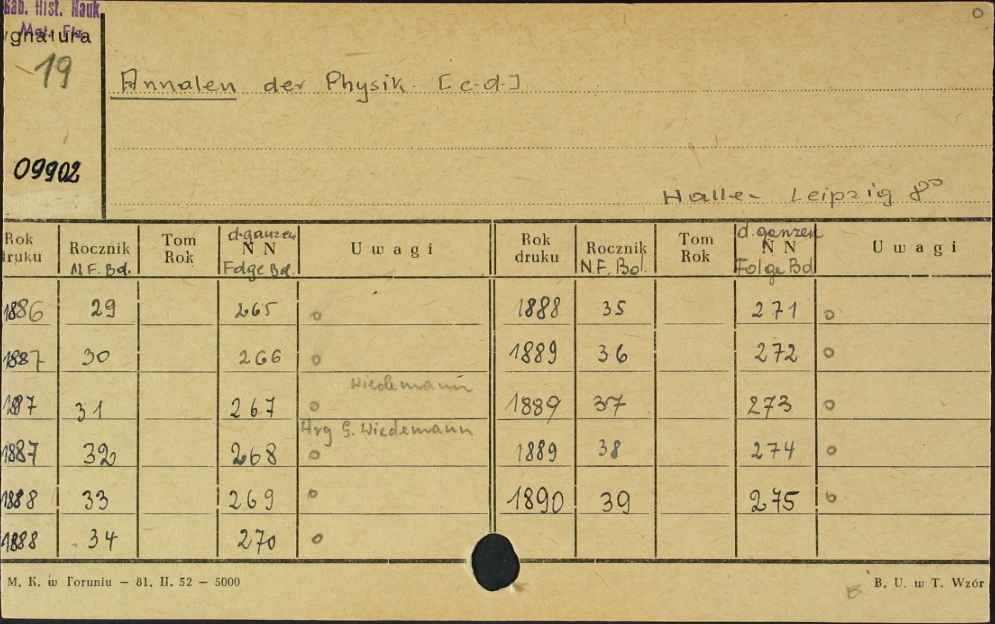 Gab. Hist. Nauk
Mat. Fiz.
ygnatura
19
09902
Annalen der Physik. [c.d.]
Halle - Leipzig 8°
Rok druku Rocznik N.F. Bd. Tom Rok d. ganzen N N Folge Bd. Uwagi Rok druku Rocznik N.F. Bd. Tom Rok d. ganzen N N Folge Bd Uwagi
1886 29 265 o 1888 35 271 o
1887 30 266 o 1889 36 272 o
Wiedemann
1887 31 267 o 1889 37 273 o
Hrg G. Wiedemann
1887 32 268 o 1889 38 274 o
1888 33 269 o 1890 39 275 o
1888 34 270 o
M. K. w Toruniu — 81. II. 52 — 5000
B. U. w T. Wzór